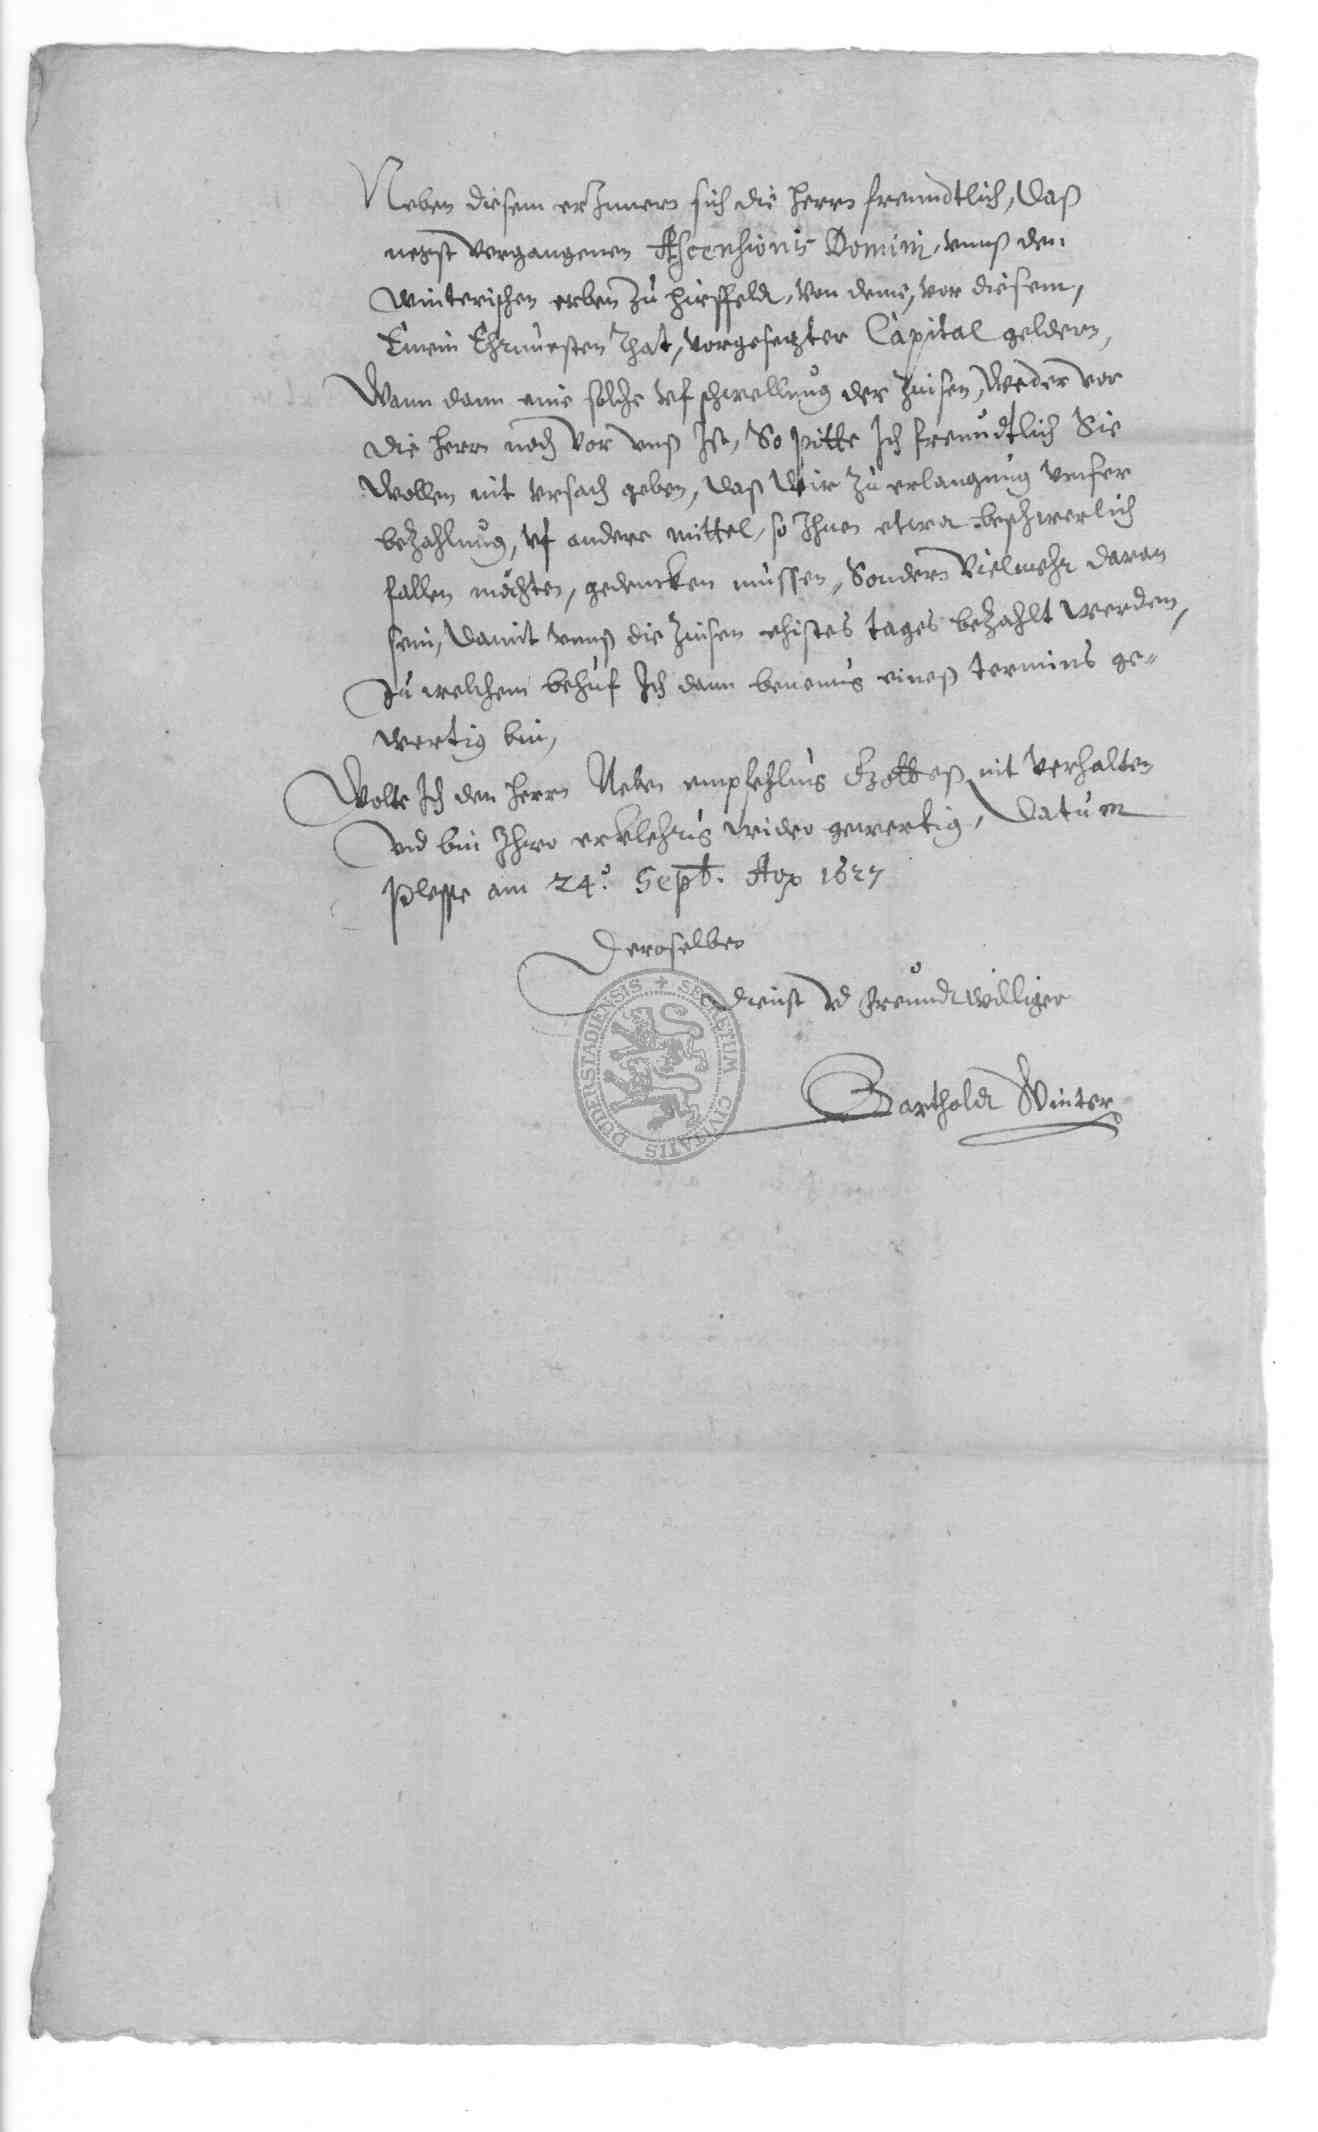 Neben diesem erInnern sich die herrn freundtlich, daß
negst vergangenen Ascensionis Domini, vnnß den
winterischen erben zu hirsfeldt, von deme, vor diesem,
Einem Ehrnuesten Rhat, vorgesetzter Capital geldern,
Wann dann eine solche vfschwellung der Zinsen, weder vor
die herrn noch vor vnnß Ist, So pitte Ich freundtlich Sie
wollen nit vrsach geben, daß Wir zu erlangung vnser
bezahlung, vf andere mittel, so Ihnen etwa beschwerlich
fallen möchten, gedencken müssen, Sondern Vielmehr daran
sein, damit vnnß die Zinsen ehistes tages bezahlt werden,
zu welchem behuf Ich dann benenus eineß termins ge-
wertig bin,
Wolte Ich den herrn Neben empfehlus Gotteß nit verhalten
vnd bin Ihrer erklehrus wider gewertig, Datum
Plesse am 24. Sept. Ao 1627
Deroselben
dienst vnd freundtwilliger
Bartholdt Winter
SECRETUM CIVITATIS DUDERSTADIENSIS